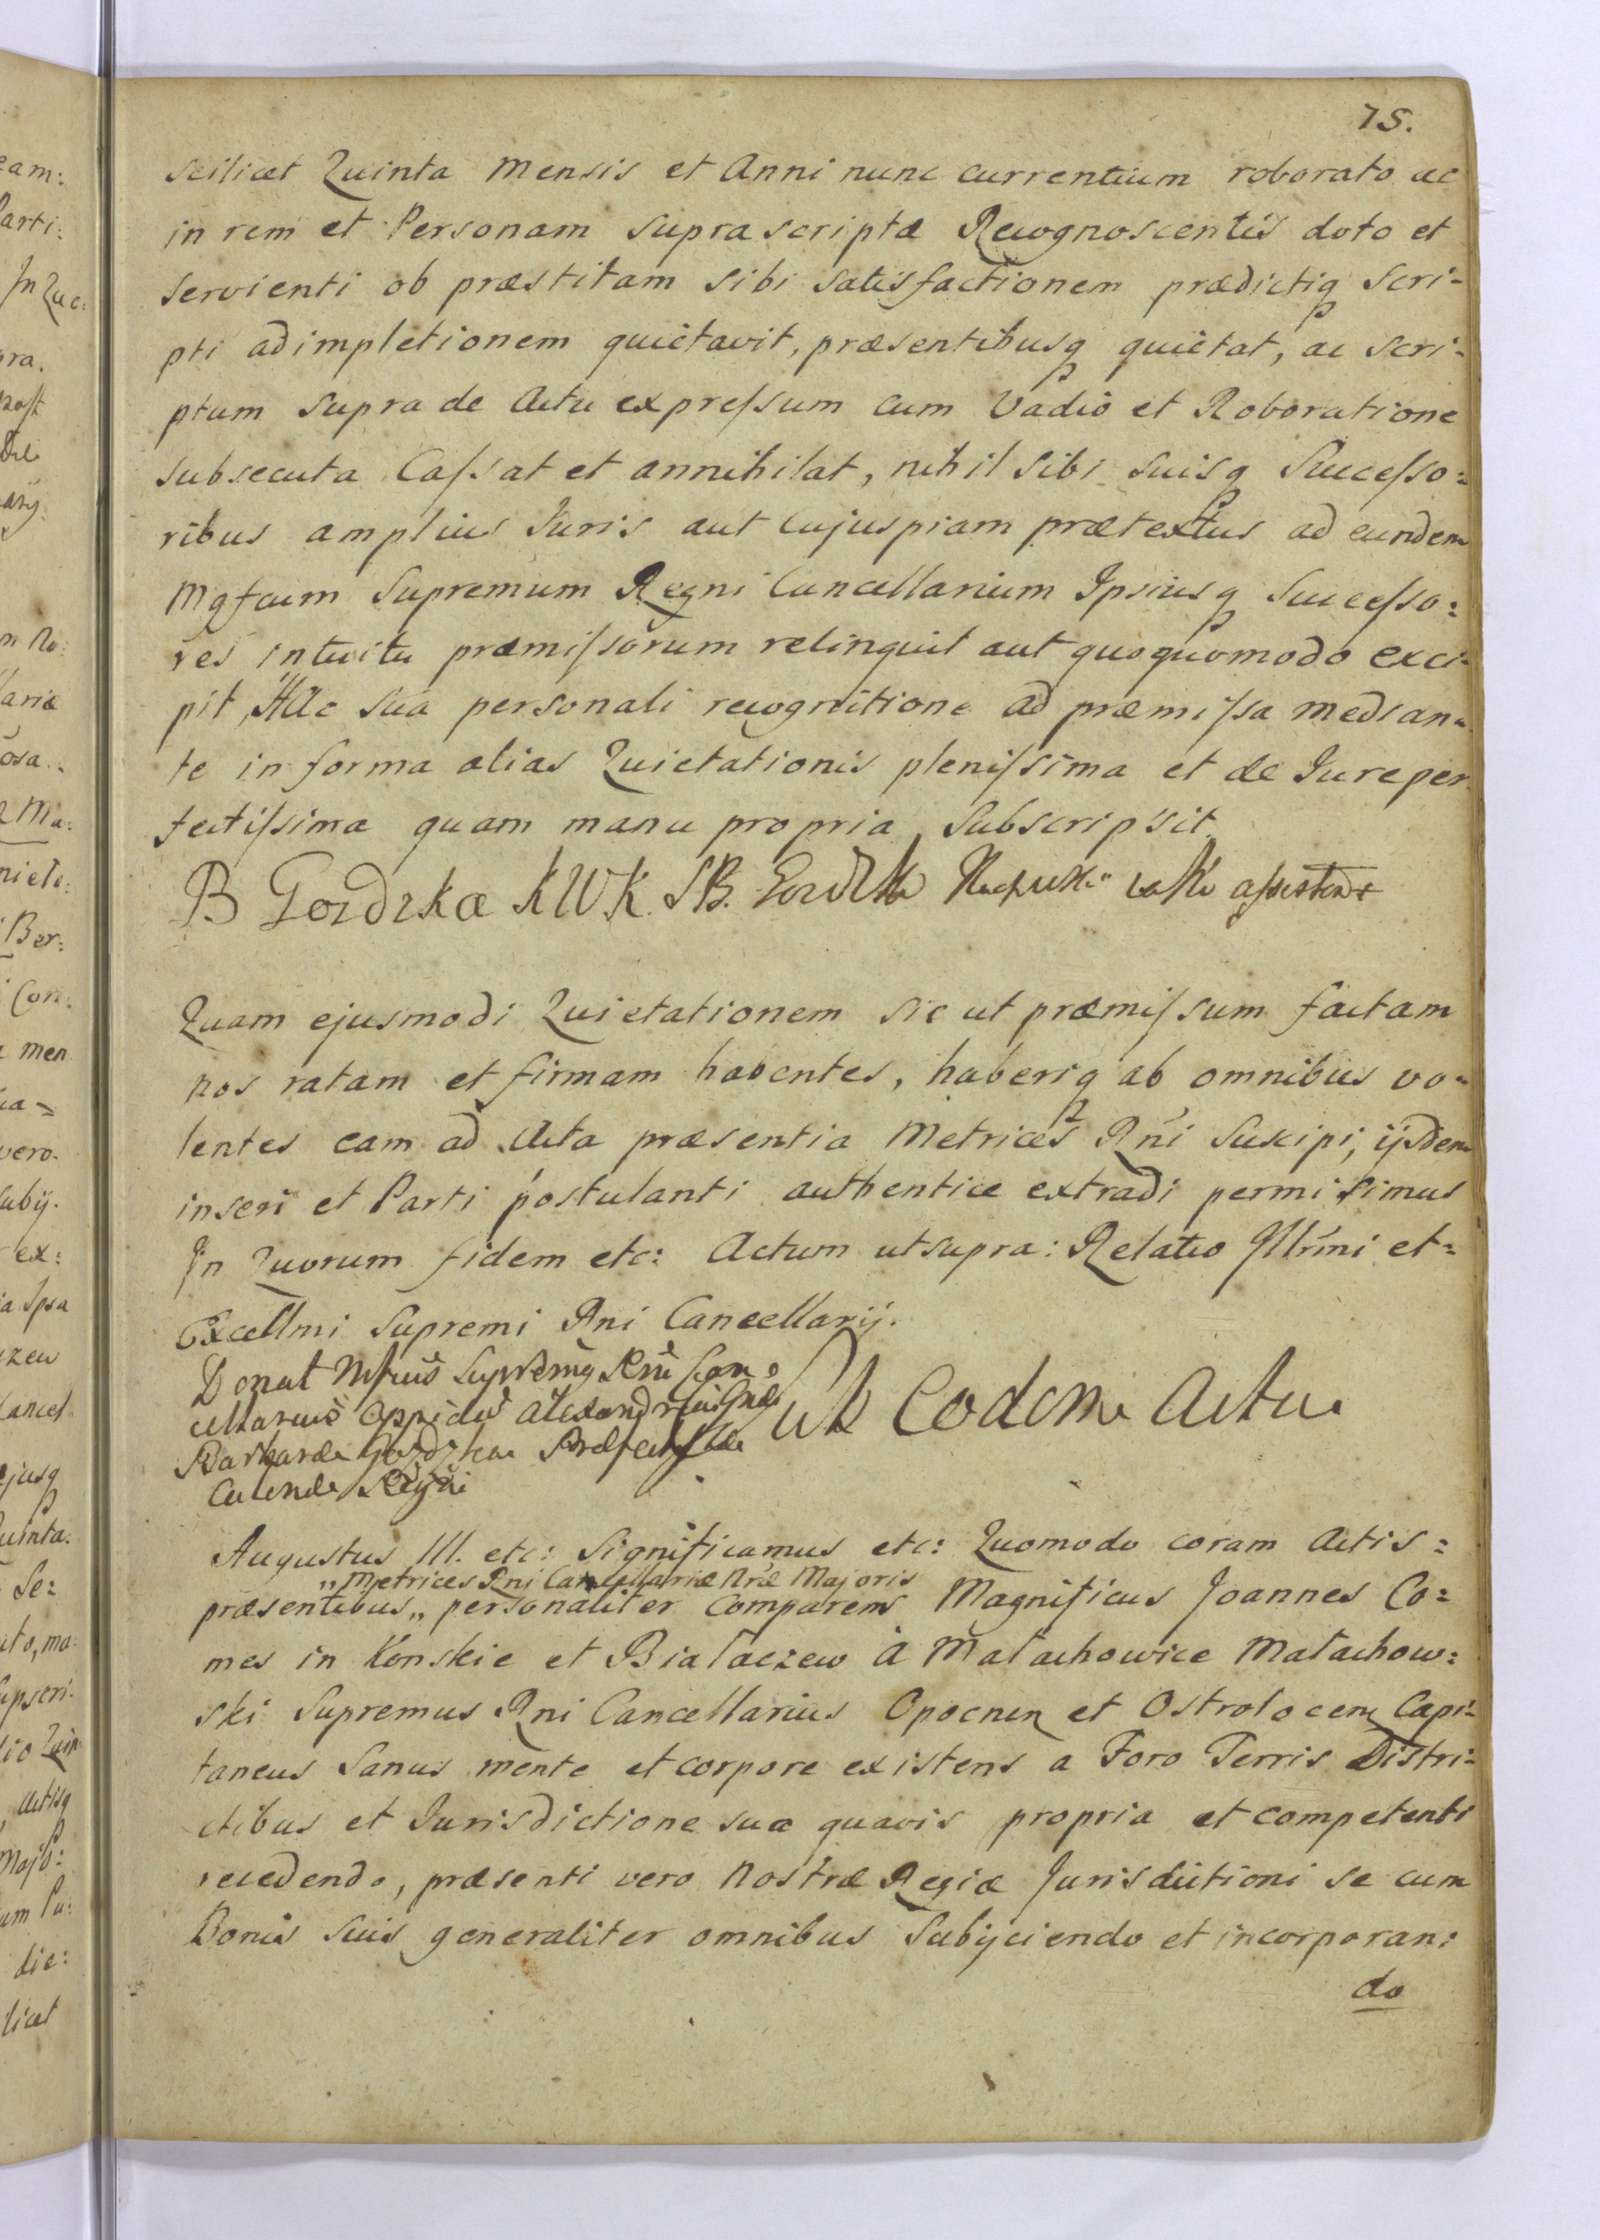 75.
scilicet Quinta Mensis et Anni nunc currentium roborato ac
in rem et Personam supra scriptæ Recognoscentis dato et
servienti ob præstitam sibi satisfactionem prædictiq scri-
pti adimpletionem quietavit, præsentibusq quietat, ac scri-
ptum supra de Actu expressum cum Vadio et Roboratione
subsecuta Cassat et annihilat, nihil sibi suisq Successo:
ribus amplius Juris aut cujuspiam prætextus ad eundem
Mgfcum Supremum Regni Cancellarium Ipsiusq Successo:
res intuitu præmissorum relinquit aut quoquomodo exci-
pit, Hac sua personali recognitione ad præmissa median-
te in forma alias Quietationis plenissima et de Jure per
fectissima quam manu propria subscripsit.
B Gozdzka KWK. SB. Gozdzka assistens
Quam ejusmodi Quietationem sic ut præmissum factam
nos ratam et firmam habentes, haberiq ab omnibus vo-
lentes eam ad Acta præsentia Metrices Rni Suscipi, ijsdem
inseri et Parti postulanti authentice extradi permisimus
In Quorum fidem etc: Actum ut supra: Relatio Illrmi et=
Excellmi Supremi Rni Cancellarij.
Donat Mfcus Supremus Rni Can:
cellarius Oppidū Alexandria Gnæ
Barbaræ Gozdzka Præfectæ
Culinæ Regni
Sub Eodem Actu
Augustus III. etc: Significamus etc: Quomodo coram Actis:
„Metrices Rni Cancellariæ Nræ Majoris
præsentibus„ personaliter Comparens Magnificus Joannes Co:
mes in Konskie et Białaczew à Małachowice Małachow:
ski Supremus Rni Cancellarius Opocnen et Ostrolocen Capi-
taneus Sanus mente et corpore existens a Foro Terris Distri-
ctibus et Jurisdictione sua quavis propria et competenti
recedendo, præsenti vero Nostræ Regiæ Jurisdictioni se cum
Bonis suis generaliter omnibus Subijciendo et incorporan:
do